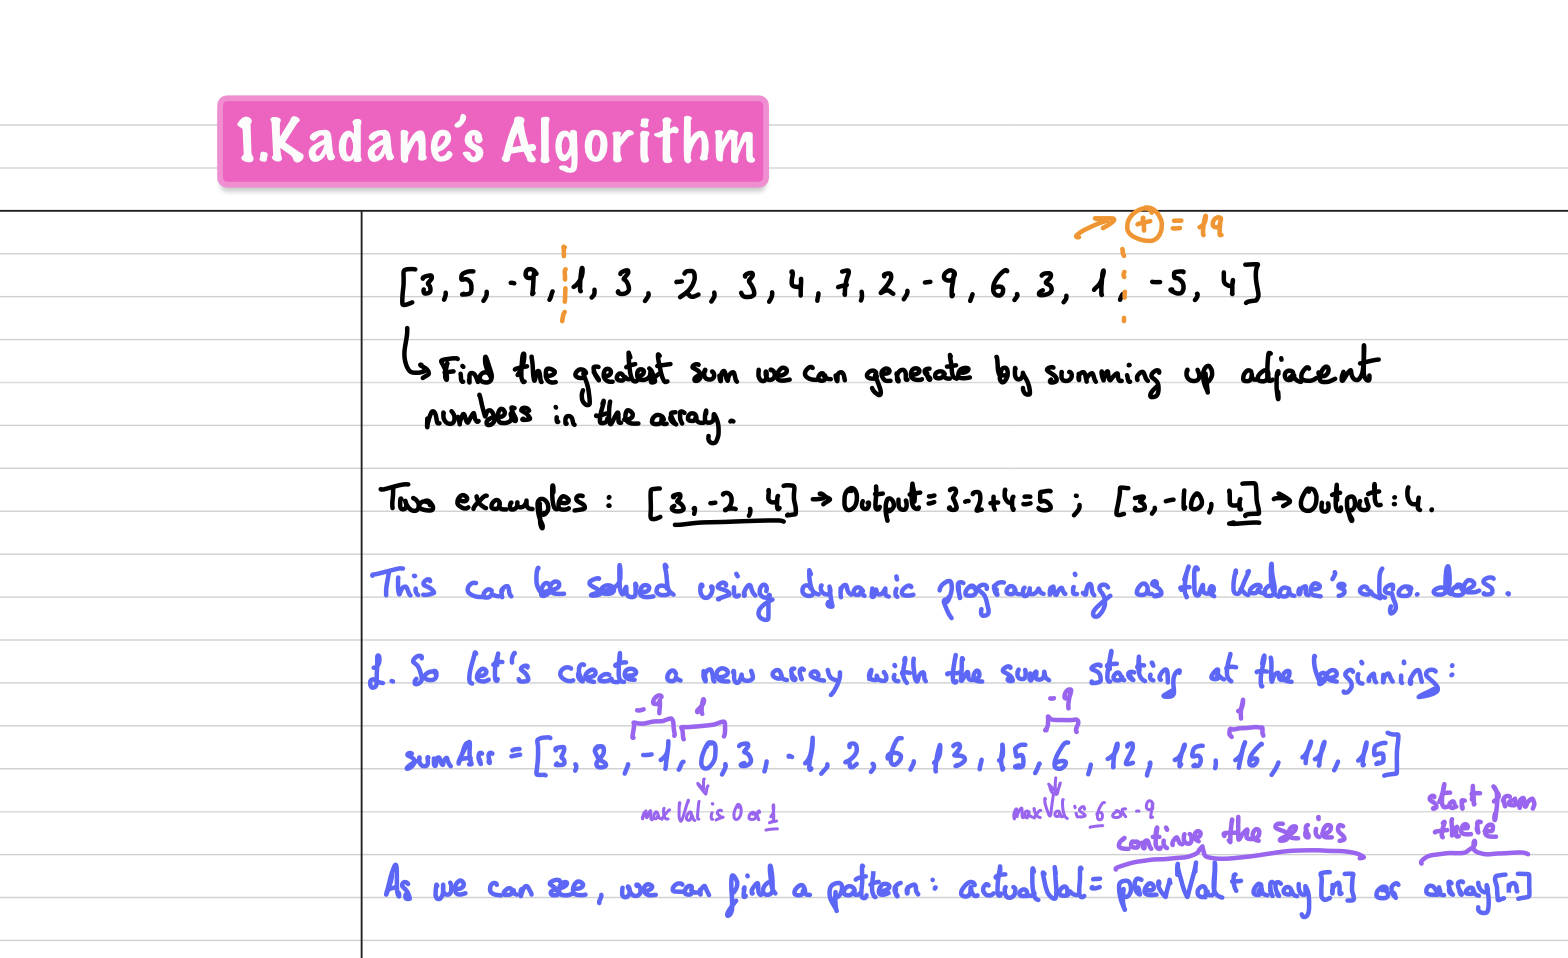 1.Kadane's Algorithm
+ = 19
[3, 5, -9, 1, 3, -2, 3, 4, 7, 2, -9, 6, 3, 1, -5, 4]
Find the greatest sum we can generate by summing up adjacent
numbers in the array.
Two examples : [3, -2, 4] → Output = 3-2+4=5 ; [3, -10, 4] → Output : 4.
This can be solved using dynamic programming as the Kadane's algo. does.
1. So let's create a new array with the sum starting at the beginning :
-9 1 -9 1
sumArr = [3, 8, -1, 0, 3, -1, 2, 6, 13, 15, 6, 12, 15, 16, 11, 15]
maxVal is 0 or 1 maxVal is 6 or -9
continue the series
start from
there
As we can see, we can find a pattern : actualVal = prevVal + array[n] or array[n]